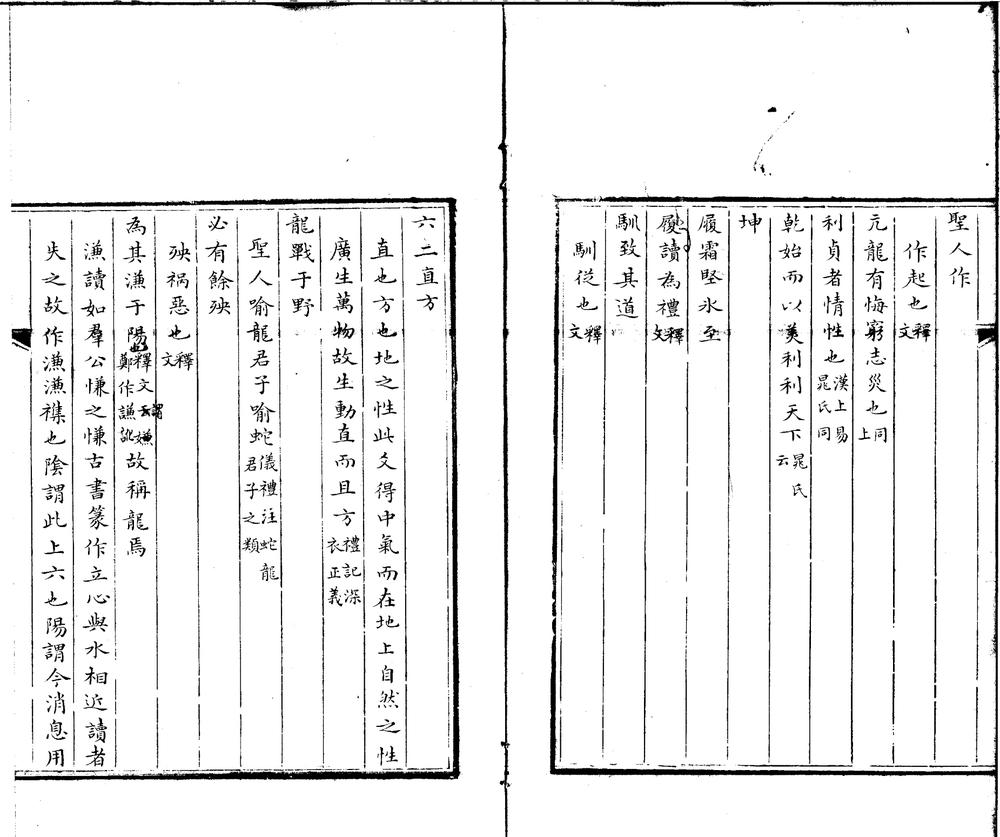 聖人作
作起也釋文
亢龍有悔窮志災也同上
利貞者情性也漢上易晁氏同
乾始而以美利利天下晁氏云
坤
履霜堅冰至
履讀為禮釋文
馴致其道
馴從也釋文
六二直方
直也方也地之性此爻得中氣而在地上自然之性
廣生萬物故生動直而且方禮記深衣正義
龍戰于野
聖人喻龍君子喻蛇儀禮注蛇龍君子之類
必有餘殃
殃禍惡也釋文
為其溓于陽也釋文云謂嫌鄭作謙訛故稱龍焉
溓讀如羣公慊之慊古書篆作立心與水相近讀者
失之故作溓溓襍也陰謂此上六也陽謂今消息用